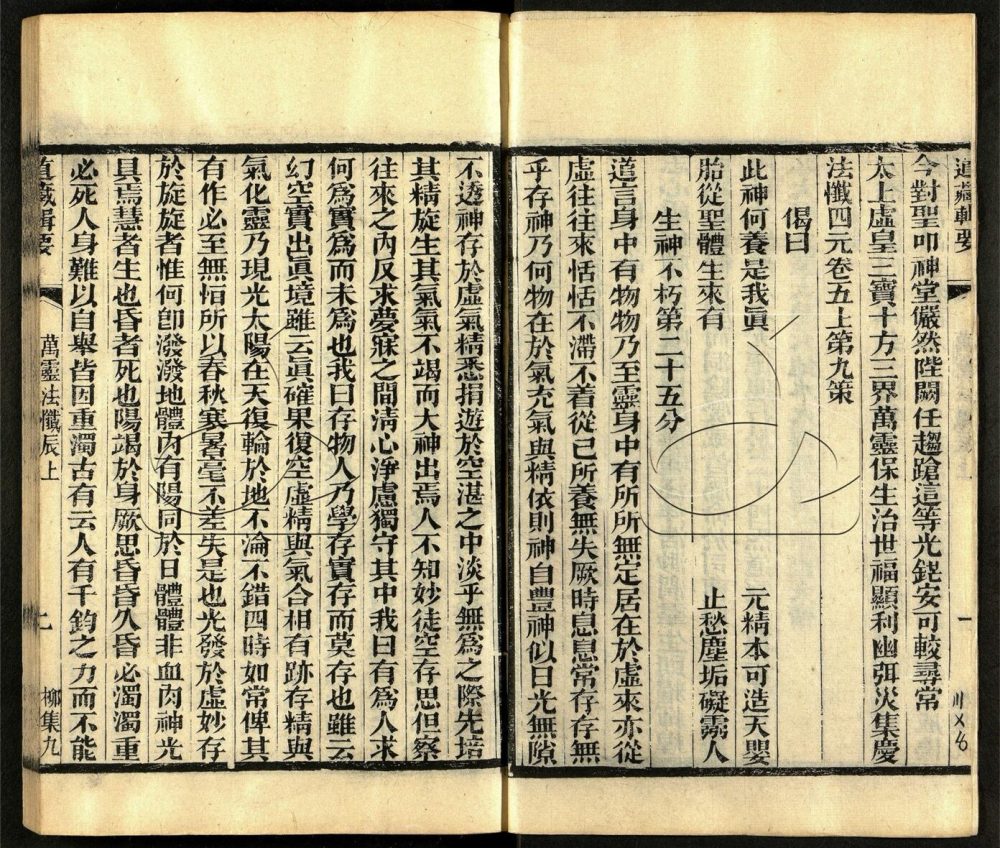 道藏輯要
今對聖叩神堂儼然陛闕任趨蹌這等光鋩安可較尋常
太上虛皇三寶十方三界萬靈保生治世福顯利幽弭災集慶
法懺四元卷五上第九策
偈曰
此神何養是我眞 元精本可造天嬰
胎從聖體生來有 止愁塵垢礙靈人
生神不朽第二十五分
道言身中有物物乃至靈身中有所所無定居在於虛來亦從
虛往往來恬恬不滯不着從己所養無失厥時息息常存存無
乎存神乃何物在於氣充氣與精依則神自豐神似日光無隙
不透神存於虛氣精悉捐遊於空湛之中淡乎無爲之際先培
其精旋生其氣氣不竭而大神出焉人不知妙徒空存思但察
往來之內反求夢寐之間淸心淨慮獨守其中我曰有爲人求
何爲實爲而未爲也我曰存物人乃學存實存而莫存也雖云
幻空實出眞境雖云眞確果復空虛精與氣合相有跡存精與
氣化靈乃現光太陽在天復輪於地不淪不錯四時如常俾其
有作必至無恒所以春秋寒暑毫不差失是也光發於虛妙存
於旋旋者惟何卽潑潑地體內有陽同於日體體非血肉神光
具焉慧者生也昏者死也陽竭於身厥思昏昏久昏必濁濁重
必死人身難以自舉皆因重濁古有云人有千鈞之力而不能
道藏輯要 萬靈法懺辰上 柳集九